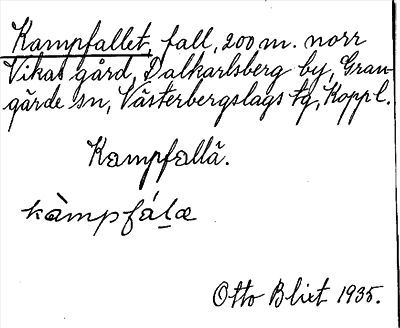 Kampfallet, fall, 200 m. norr
Vikas gård, Dalkarlsberg by, Gran-
gärde sn, Västerbergslags tg, Koppl.
Kampfallä.
kàmpfáḷæ
Otto Blixt 1935.